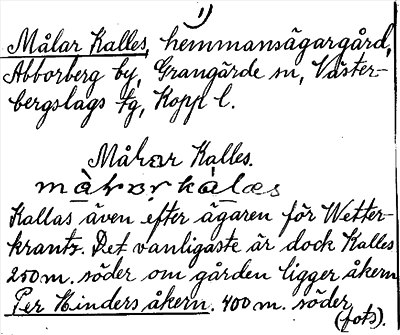 1)
Målar Kalles, hemmansägargård,
Abborberg by, Grangärde sn, Väster-
bergslags tg, Kopp l.
Målar Kalles.
Kallas även efter ägaren för Wetter-
krantz. Det vanligaste är dock Kalles
200 m. söder om gården ligger åkern
Per Hinders åkern. 400 m. söder
(forts).